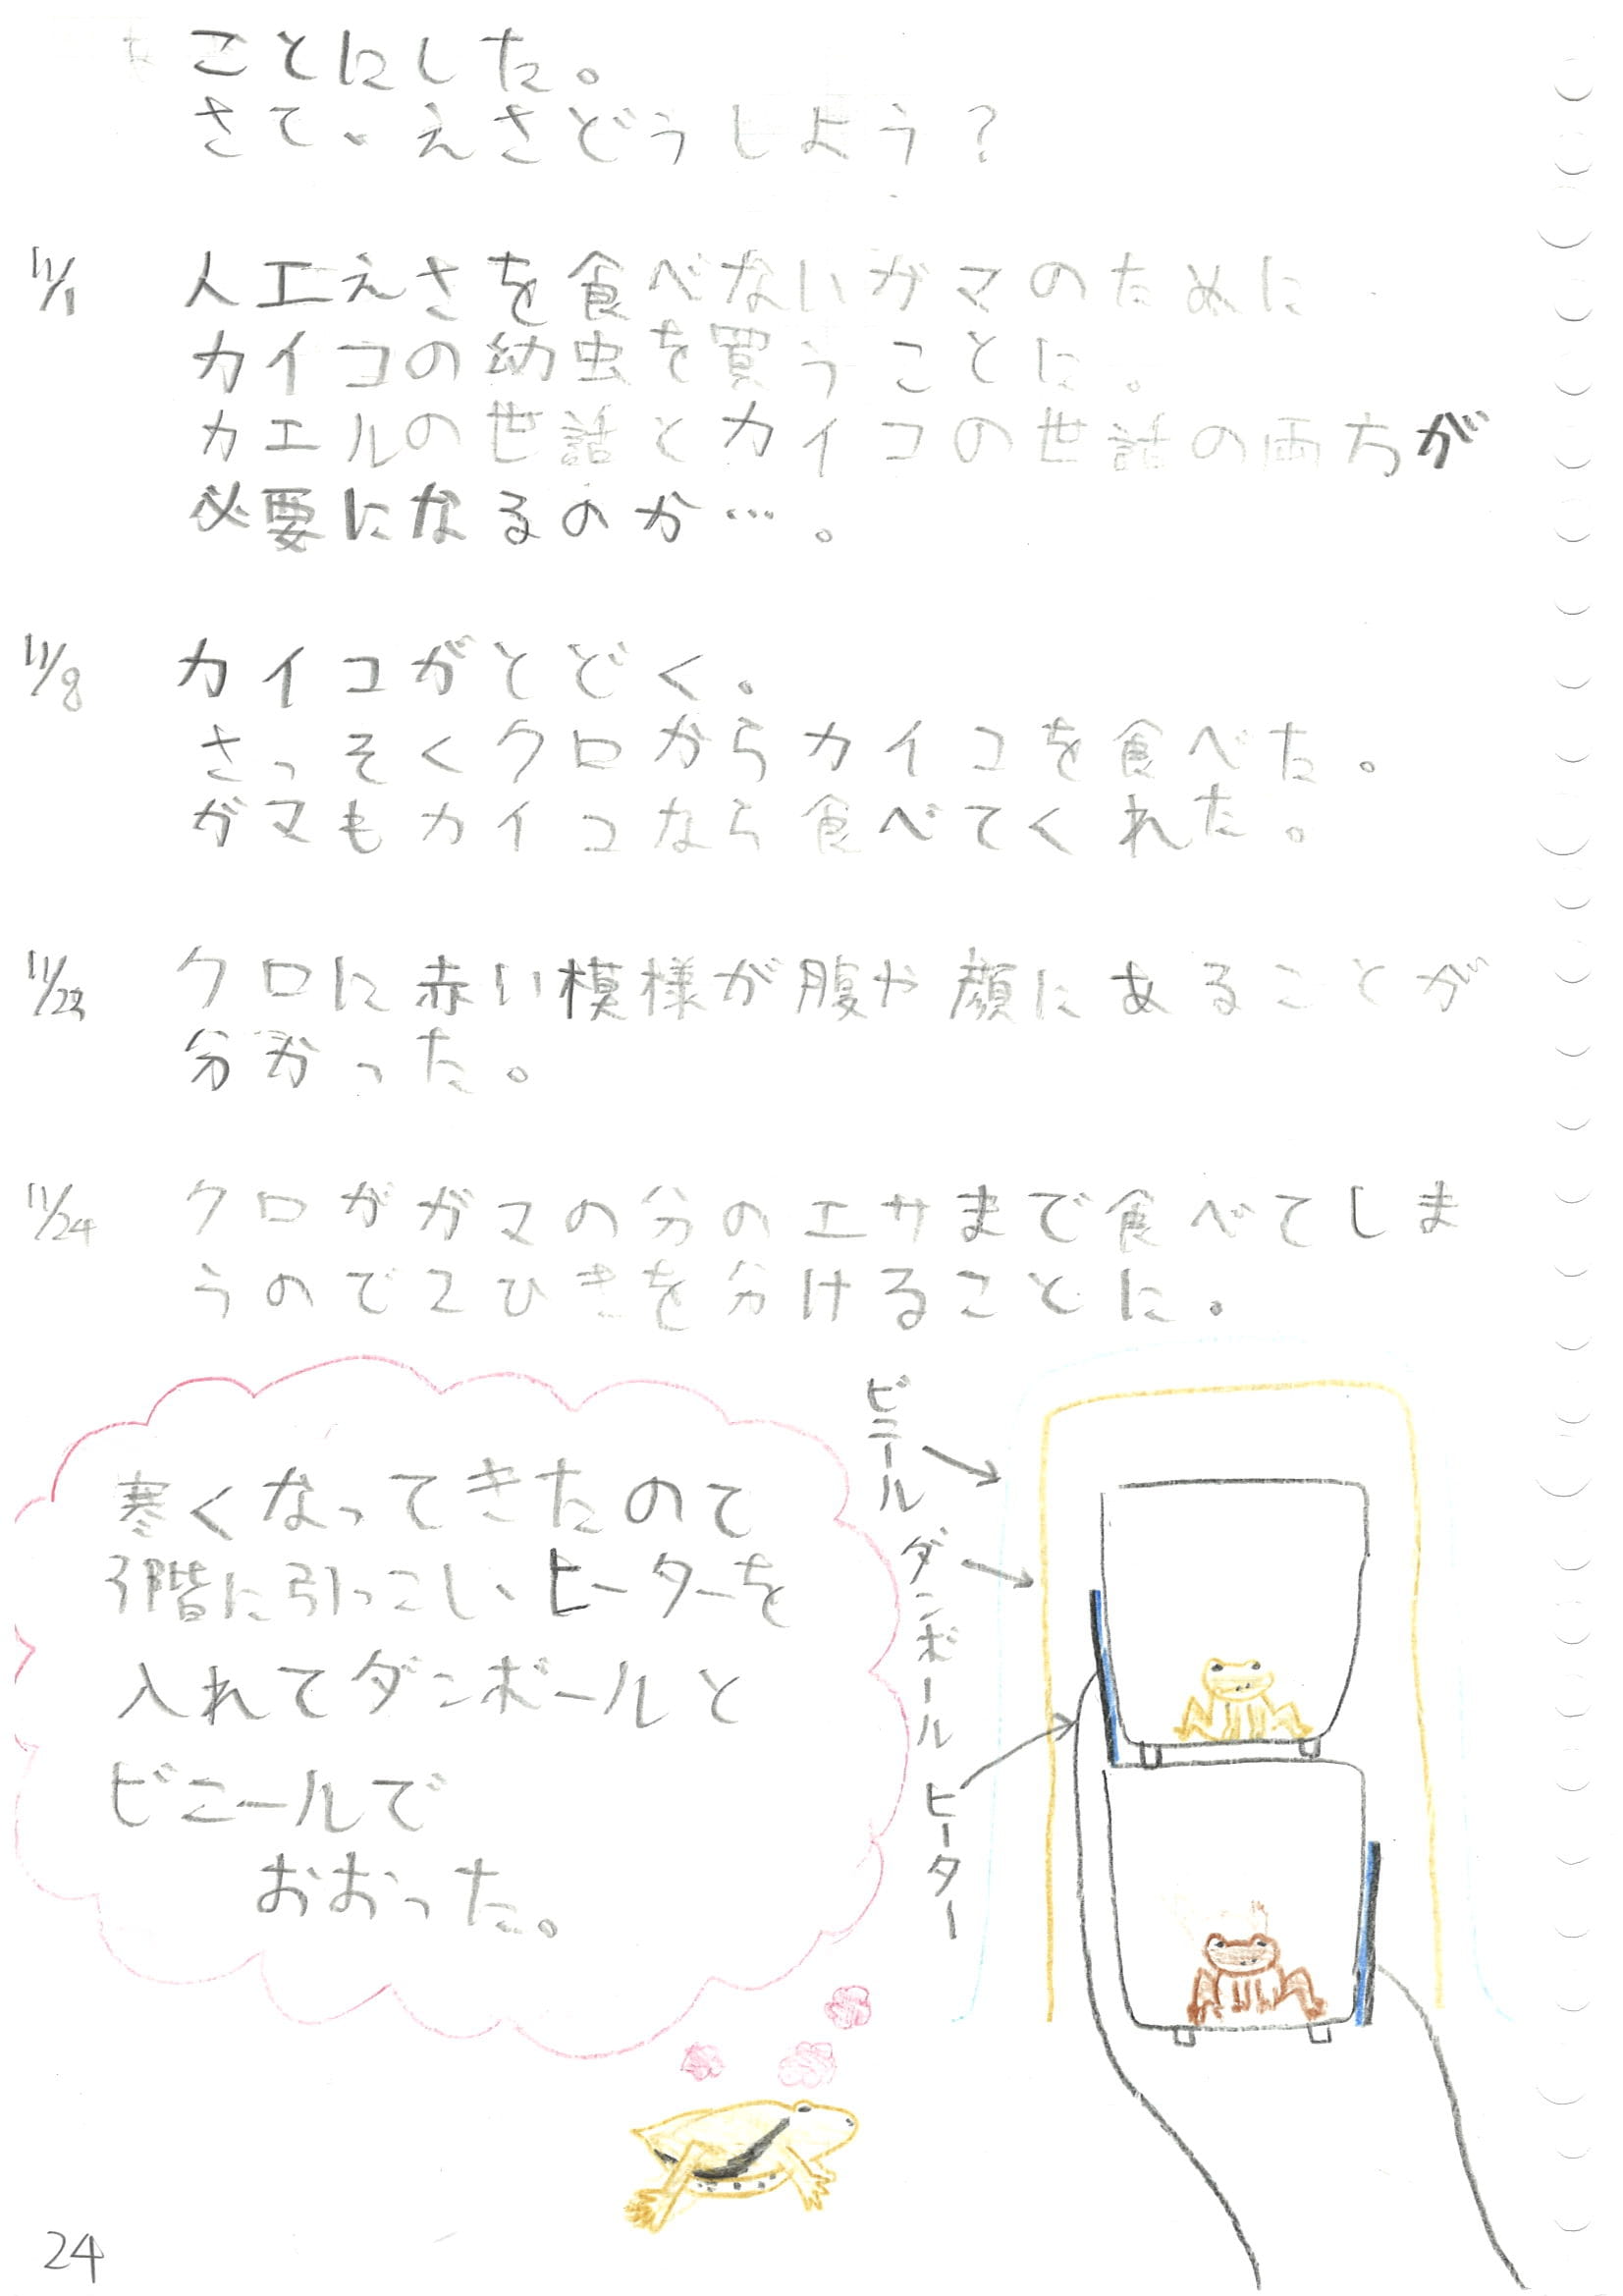 ことにした。
さて、えさどうしよう？
11/1 人工えさを食べないガマのために
カイコの幼虫を買うことに。
カエルの世話とカイコの世話の両方が
必要になるのか…。
11/8 カイコがとどく。
さっそくクロからカイコを食べた。
ガマもカイコなら食べてくれた。
11/23 クロに赤い模様が腹や顔にあることが
分かった。
11/24 クロがガマの分のエサまで食べてしま
うので2ひきを分けることに。
寒くなってきたので
3階に引っこし、ヒーターを
入れてダンボールと
ビニールで
おおった。
ビニール
ダンボール
ヒーター
24